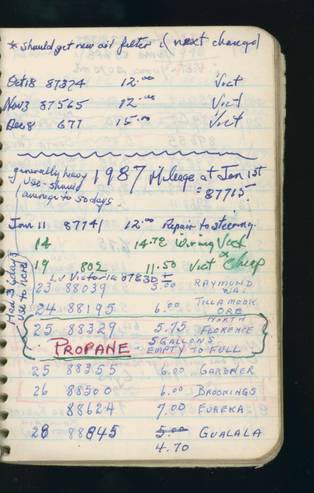 * Should get new oil filter (next change)
Oct 18 87324 12.00 Vict
Nov 3 87565 12.00 Vict
Dec 8 677 15.00 Vict
generally heavy 1987 Mileage at Jan 1st
use - should = 87715
average to 50 days.
Jan 11 87741 12.00 Repair to steering
14 14.72 Wiring Vict
19 802 11.50 Vict Cheap
Lv Victoria 87835
23 88039 5.00 RAYMOND WA.
24 88195 6.00 TILLAMOOK ORE
NORTH
25 88329 5.75 FLORENCE
PROPANE 5 GALLONS
EMPTY TO FULL
25 88355 6.00 GARDNER
26 88500 6.00 BROOKINGS
88624 7.00 EUREKA
28 88845 5.00 GUALALA
4.70